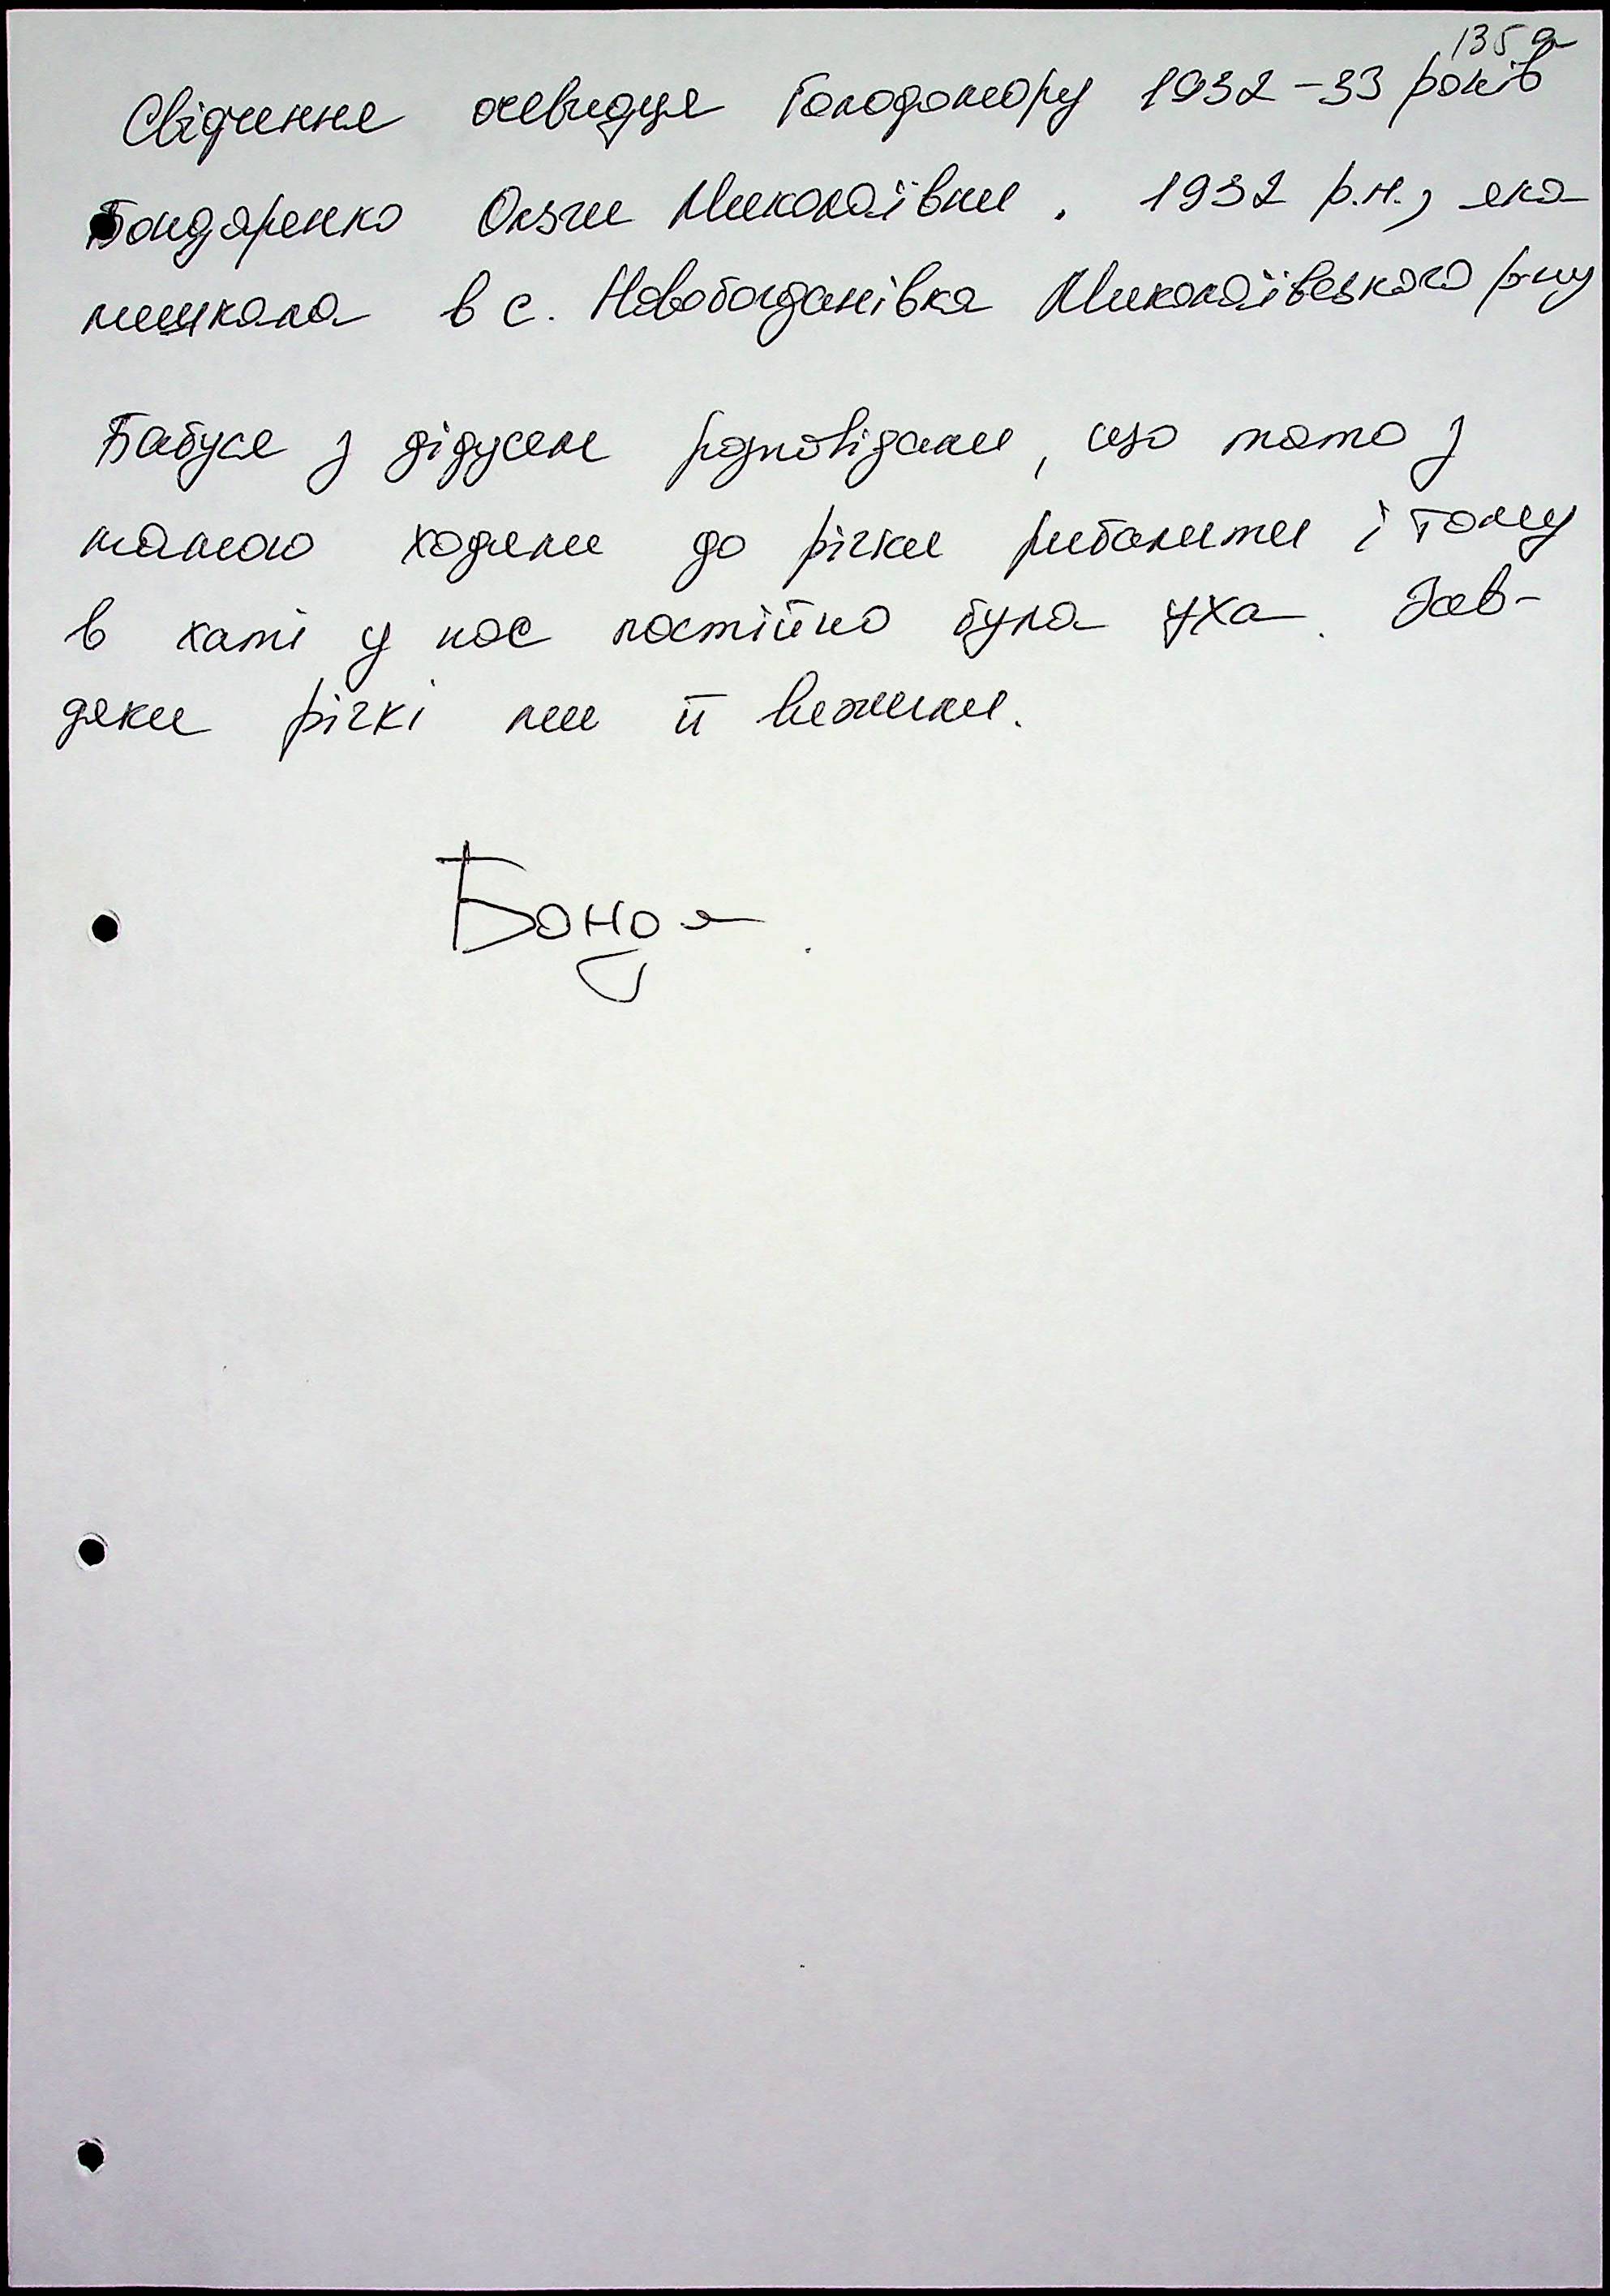 135а
Свідчення очевидця Голодомору 1932-33 років
Бондаренко Ольги Миколаївни. 1932 р.н., яка
мешкала в с. Новобогданівка Миколаївського р-ну
Бабуся з дідусем розповідали, що тато з
мамою ходили до річки рибалити і тому
в хаті у нас постійно була уха. Зав-
дяки річкі ми й вижили.
Бонда